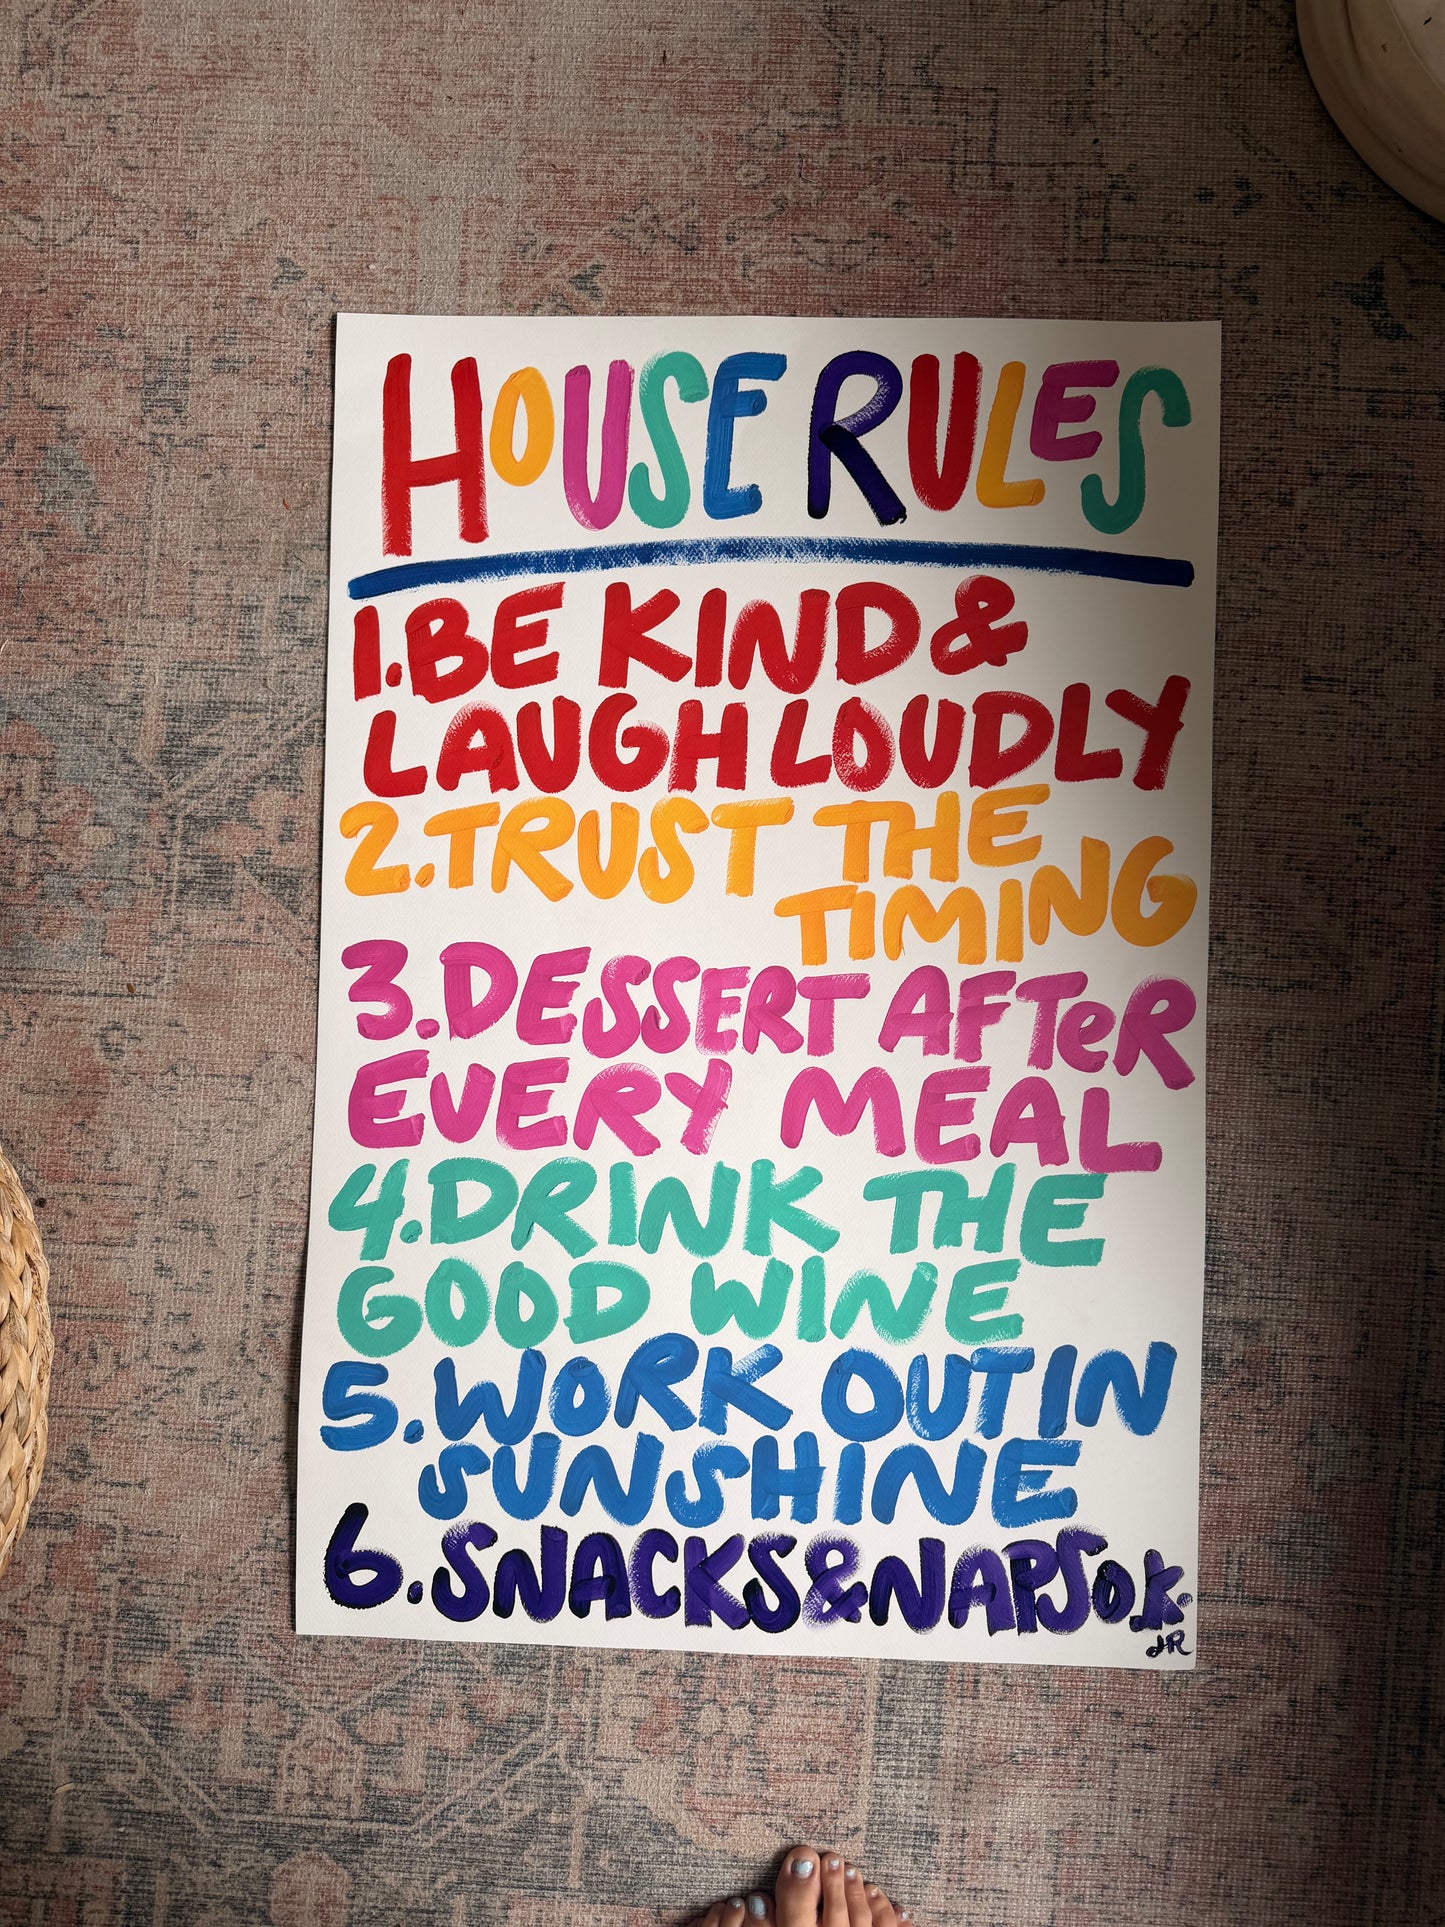 HOUSE RULES
1. BE KIND &
LAUGH LOUDLY
2. TRUST THE
TIMING
3. DESSERT AFTeR
EVERY MEAL
4. DRINK THE
GOOD WINE
5. WORK OUT IN
SUNSHINE
6. SNACKS & NAPS o.k.
JR